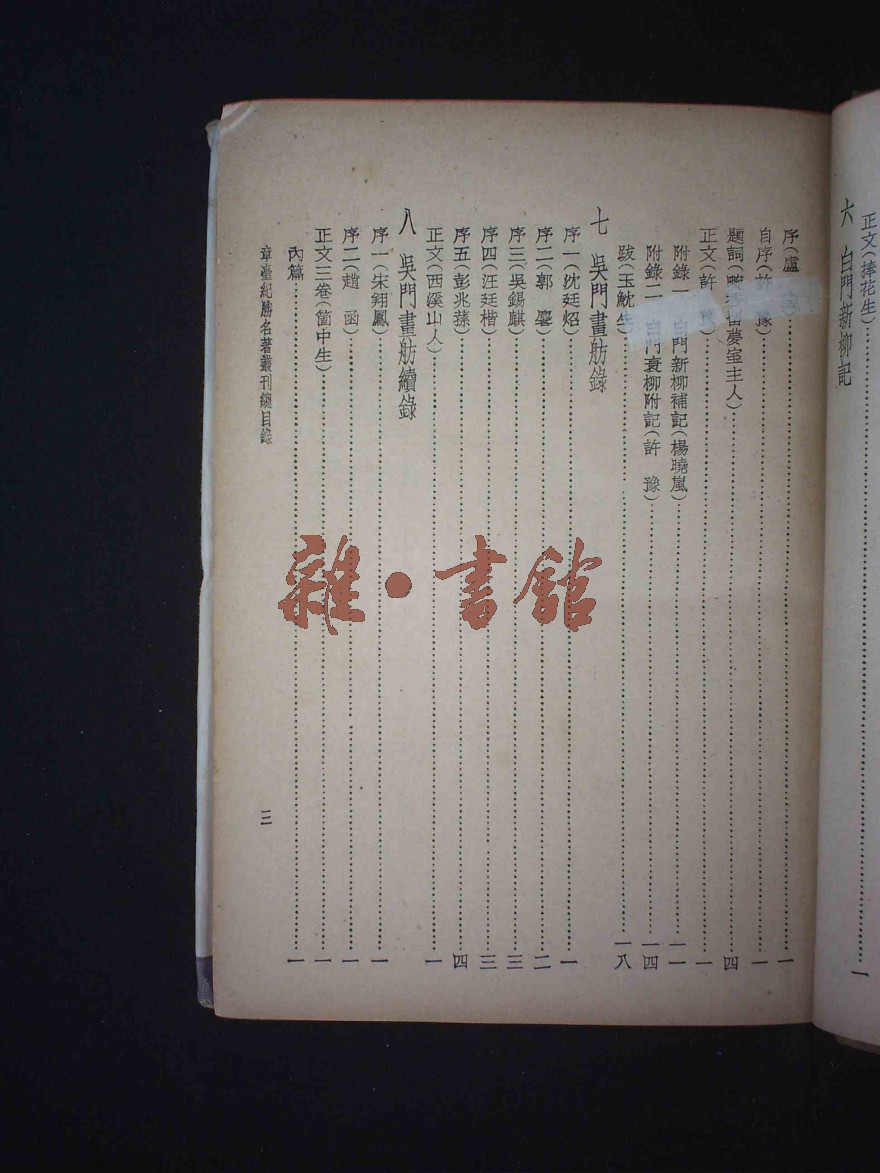 正文(捧花生)……一
六 白門新柳記
序(盧 ……一
自序(許 豫)……一
題詞( 夢室主人)……四
正文(許 )……一
附錄一 白門新柳補記(楊曉嵐)……一一
附錄二 白門衰柳附記(許 豫)……一四
跋(玉魫生)……一八
七 吳門畫舫錄
序一(沈廷炤)……一
序二(郭 麐)……二
序三(吳錫麒)……三
序四(汪廷楷)……三
序五(彭兆蓀)……四
正文(西溪山人)……一
八 吳門畫舫續錄
序一(宋翔鳳)……一
序二(趙 函)……一
正文三卷(箇中生)……一
內篇……一
章臺紀勝名著叢刊總目錄
三
雜·書館